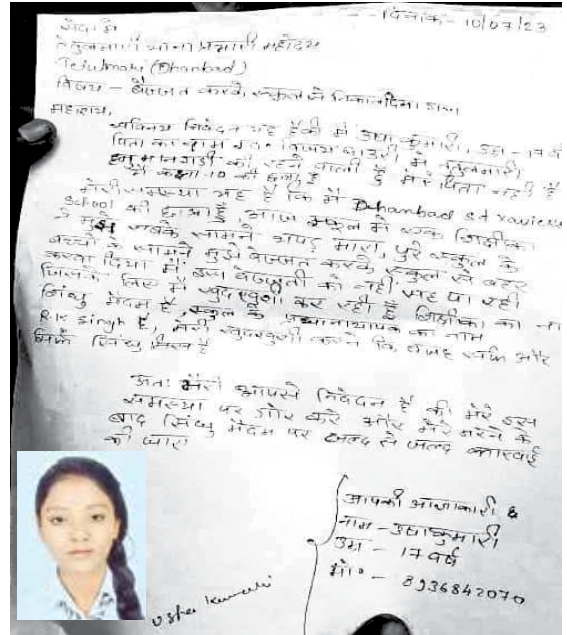 दिनांक - 10/07/23
सेवा में
तेतुलमारी थाना प्रभारी महोदय
Tetulmari (Dhanbad)
विषय - बेज्जत करके स्कूल से निकाल दिया
महाशय,
सविनय निवेदन यह है की मैं उषा कुमारी, उम्र - 17 वर्ष
पिता का नाम स्व० बाउरी मैं तेतुलमारी
हनुमानगढ़ी की रहने वाली हूँ मेरे पिता नहीं है
मैं कक्षा - 10 की छात्रा हूँ
मेरी समस्या यह है कि मैं Dhanbad St. Xavier
School की छात्रा हूँ, आज स्कूल में एक शिक्षिका
ने मुझे सबके सामने थपड़ मारा, पुरे स्कूल के
बच्चों के सामने मुझे बेज्जत करके स्कूल से बहर
करवा दिया मैं, इस बेज्जती को नहीं सह पा रही
जिसके लिए मैं खुदखुशी कर रही हूँ शिक्षिका का ना
सिंधु मैडम है स्कूल के प्रधानाध्यापक का नाम
R.K Singh है, मेरी खुदखुशी करने कि वजह सिर्फ और
सिर्फ सिंधु मिस है
अतः मेरी आपसे निवेदन है की मेरे इस
समस्या पर गौर करे और मेरे मरने के
बाद सिंधु मैडम पर जल्द से जल्द कारवाई
की जाए
आपकी आज्ञाकारी
नाम - उषा कुमारी
उम्र - 17 वर्ष
मो० - 8936842070
Usha Kumari